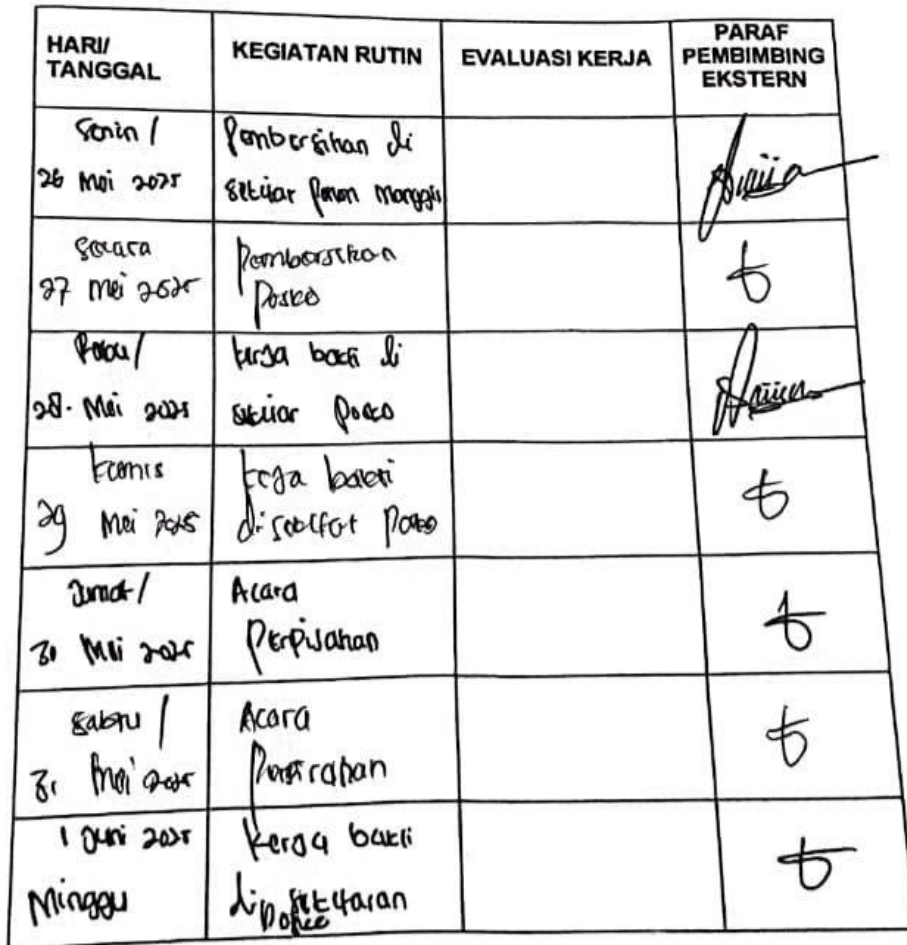 HARI/ TANGGAL
KEGIATAN RUTIN
EVALUASI KERJA
PARAF PEMBIMBING EKSTERN
Senin /
26 Mei 2025
Pembersihan di
sekitar pohon manggis
Selasa
27 Mei 2025
Pembersihan
Posko
Rabu/
28. Mei 2025
kerja bakti di
sekitar Posko
Kamis
29 Mei 2025
kerja bakti
di sekitar Posko
Jumat/
30 Mei 2025
Acara
Perpisahan
Sabtu /
31 Mei 2025
Acara
1 Juni 2025
Minggu
Kerja bakti
di sekitaran
Posko